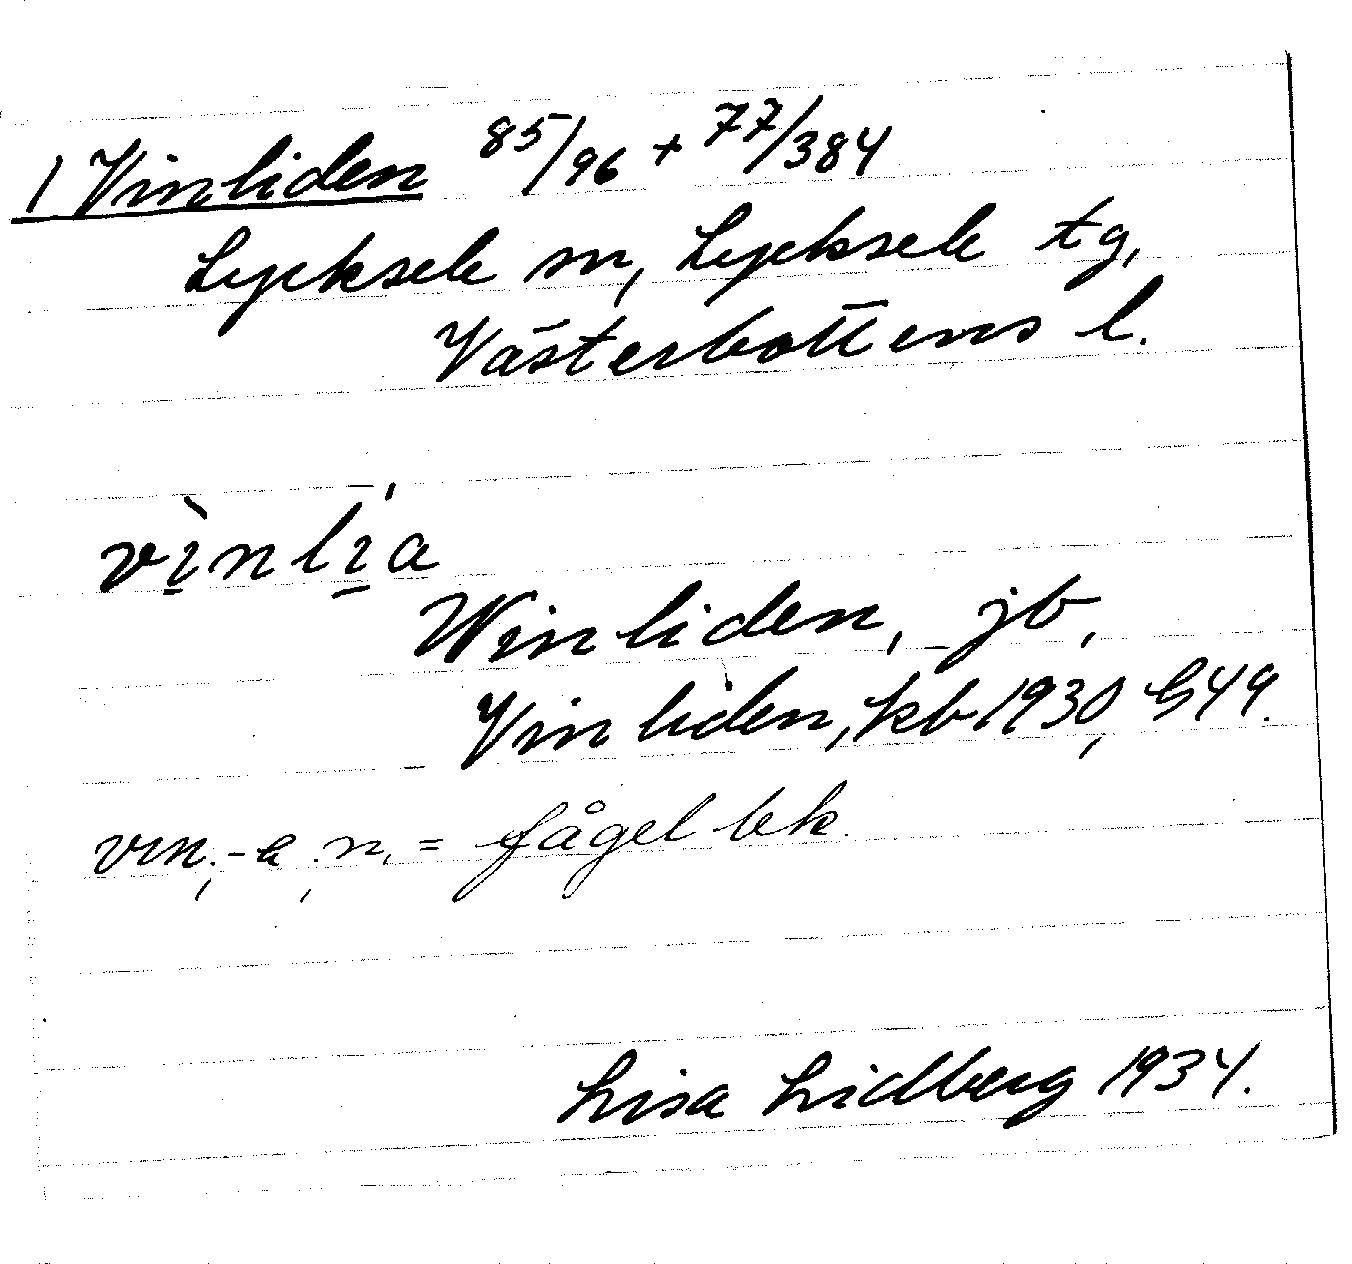 1 Vinliden 85/96 + 77/384
Lycksele sn, Lycksele tg,
Västerbottens l.
vìnlí̄a
Winliden, jb,
Vinliden, kb 1930, G49.
vin, -e, n, = fågelbk.
Lisa Lidberg 1934.